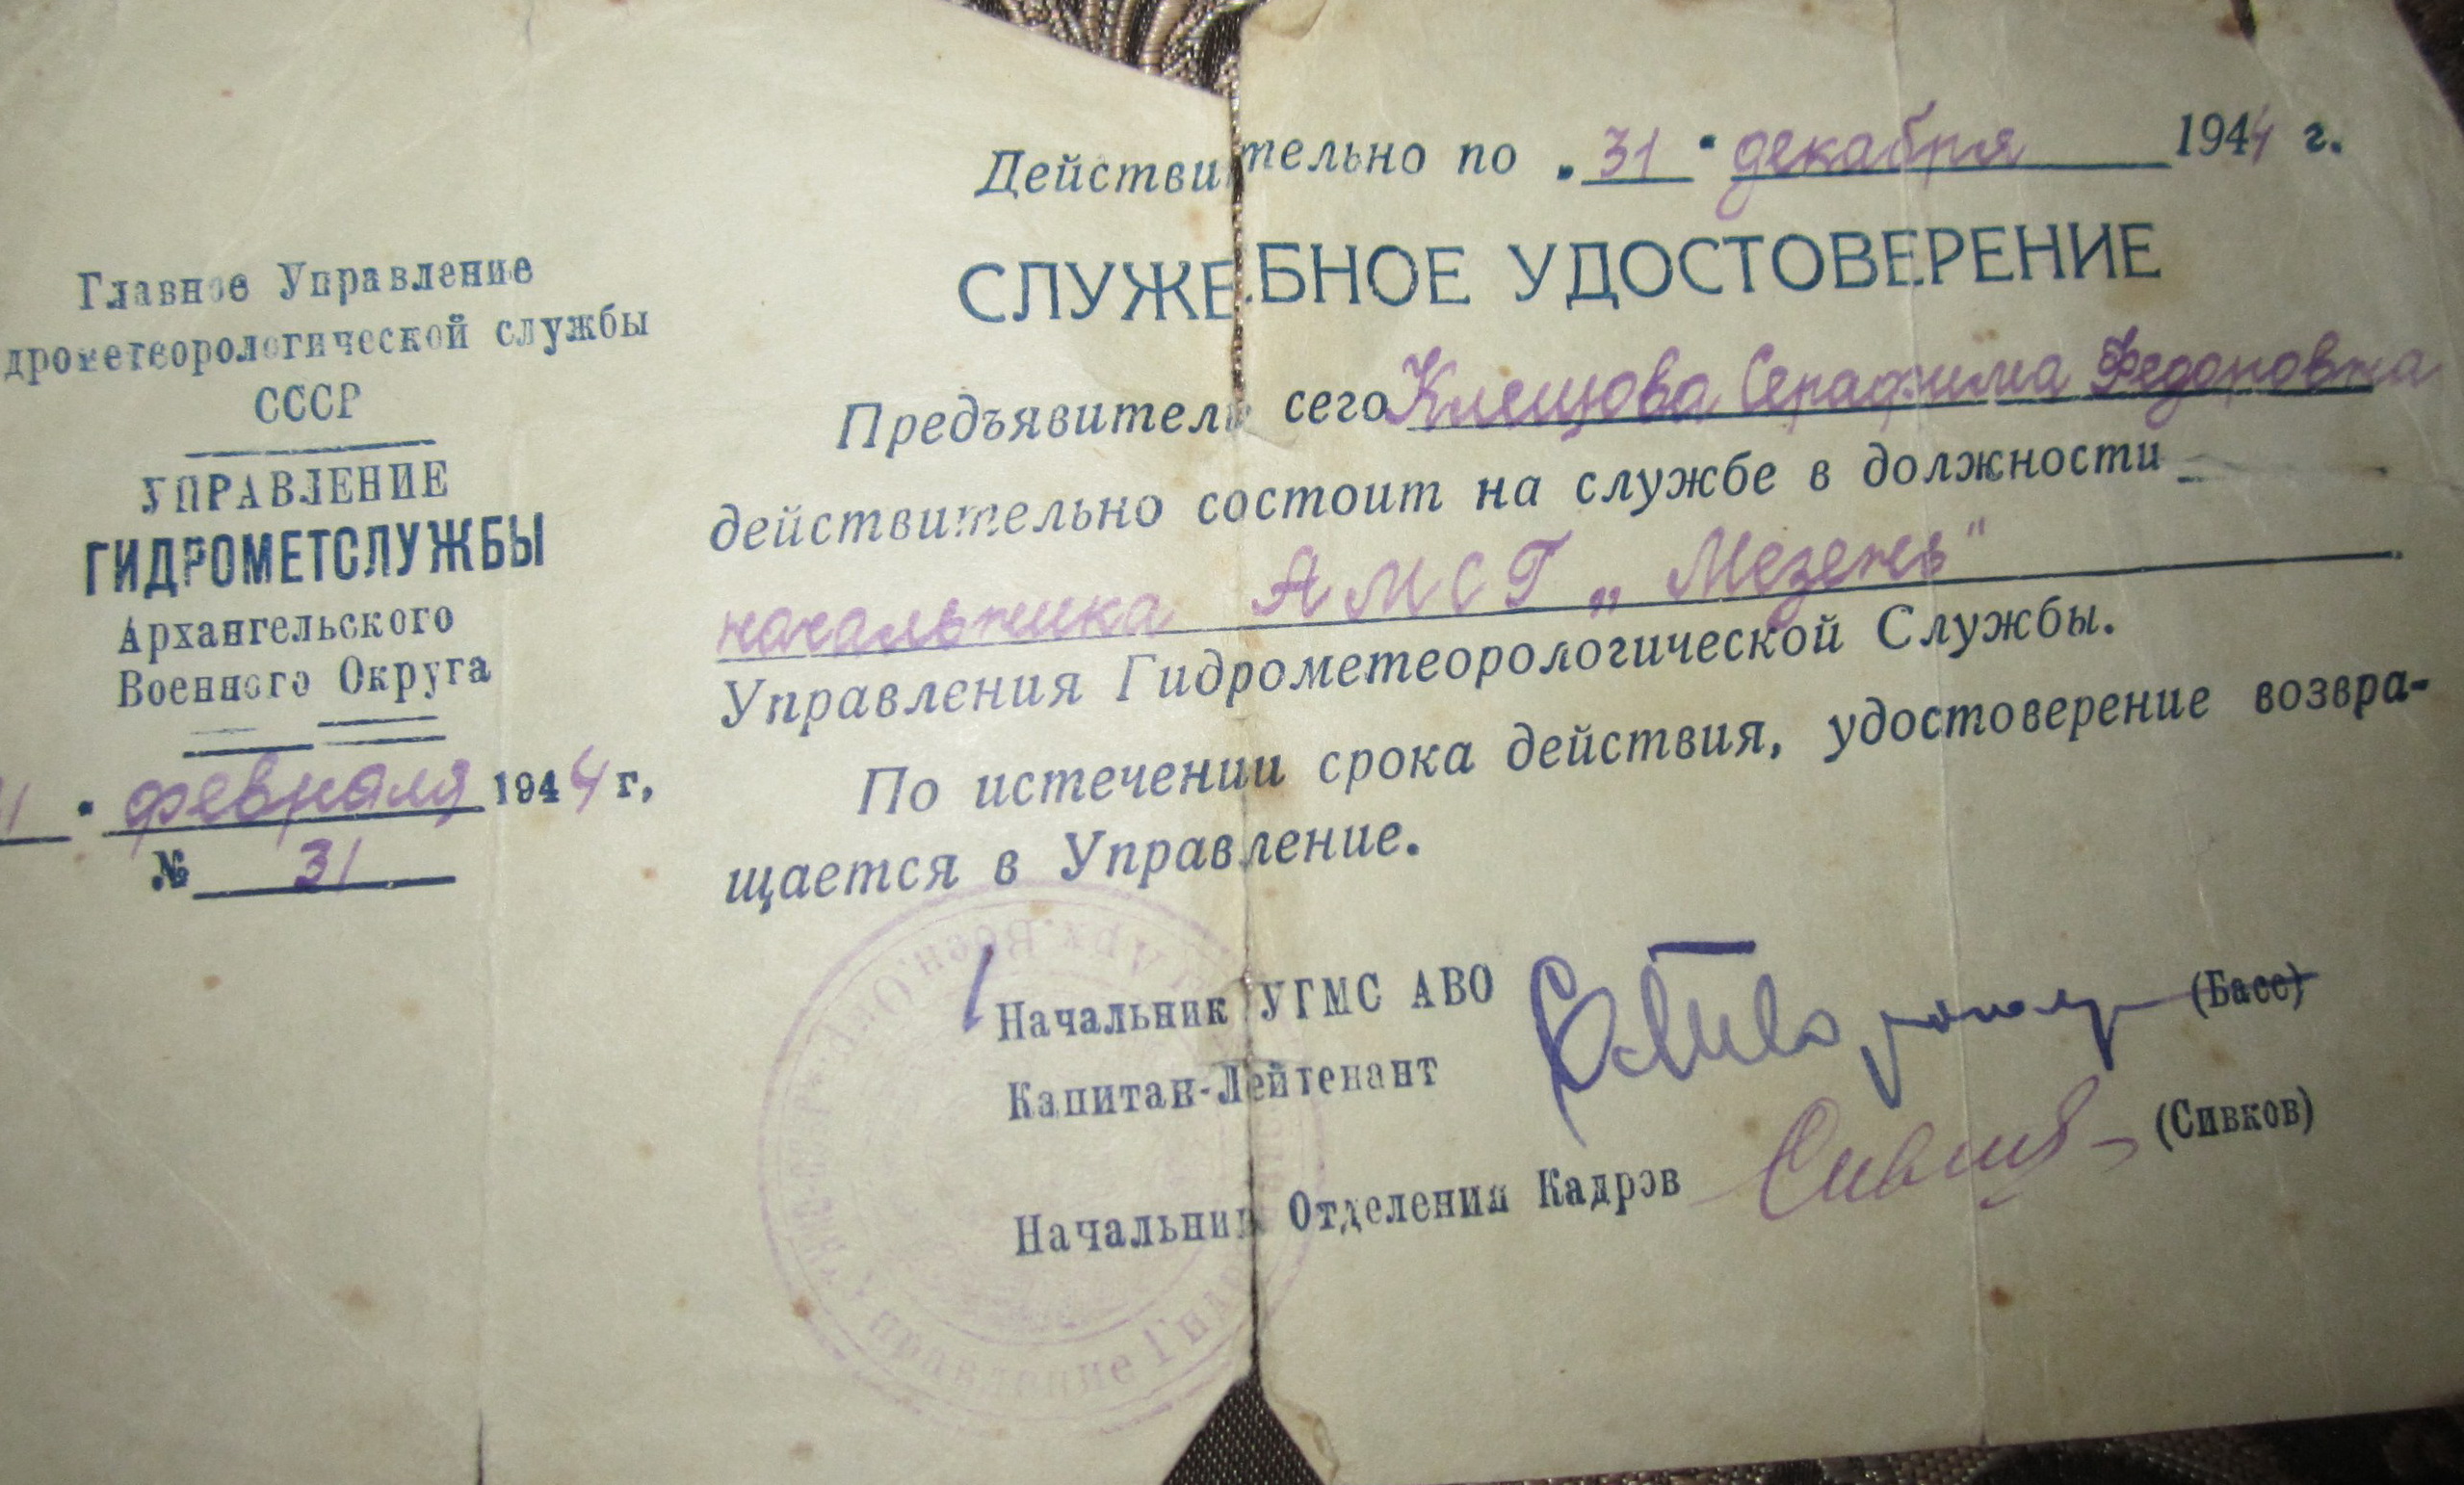 Главное Управление
дрометеорологической службы
СССР
УПРАВЛЕНИЕ
ГИДРОМЕТСЛУЖБЫ
Архангельского
Военного Округа
февраля 1944 г.
№ 31
Действительно по "31" декабря 1944 г.
СЛУЖЕБНОЕ УДОСТОВЕРЕНИЕ
Предъявитель сего Клещова Серафима Федоровна
действительно состоит на службе в должности
начальника АМСГ „Мезень"
Управления Гидрометеорологической Службы.
По истечении срока действия, удостоверение возвра-
щается в Управление.
Начальник УГМС АВО
(Басс)
Капитан-Лейтенант
Начальник Отделения Кадров Сивков (Сивков)
Управление Гидро
Арх. Воен. Окр.